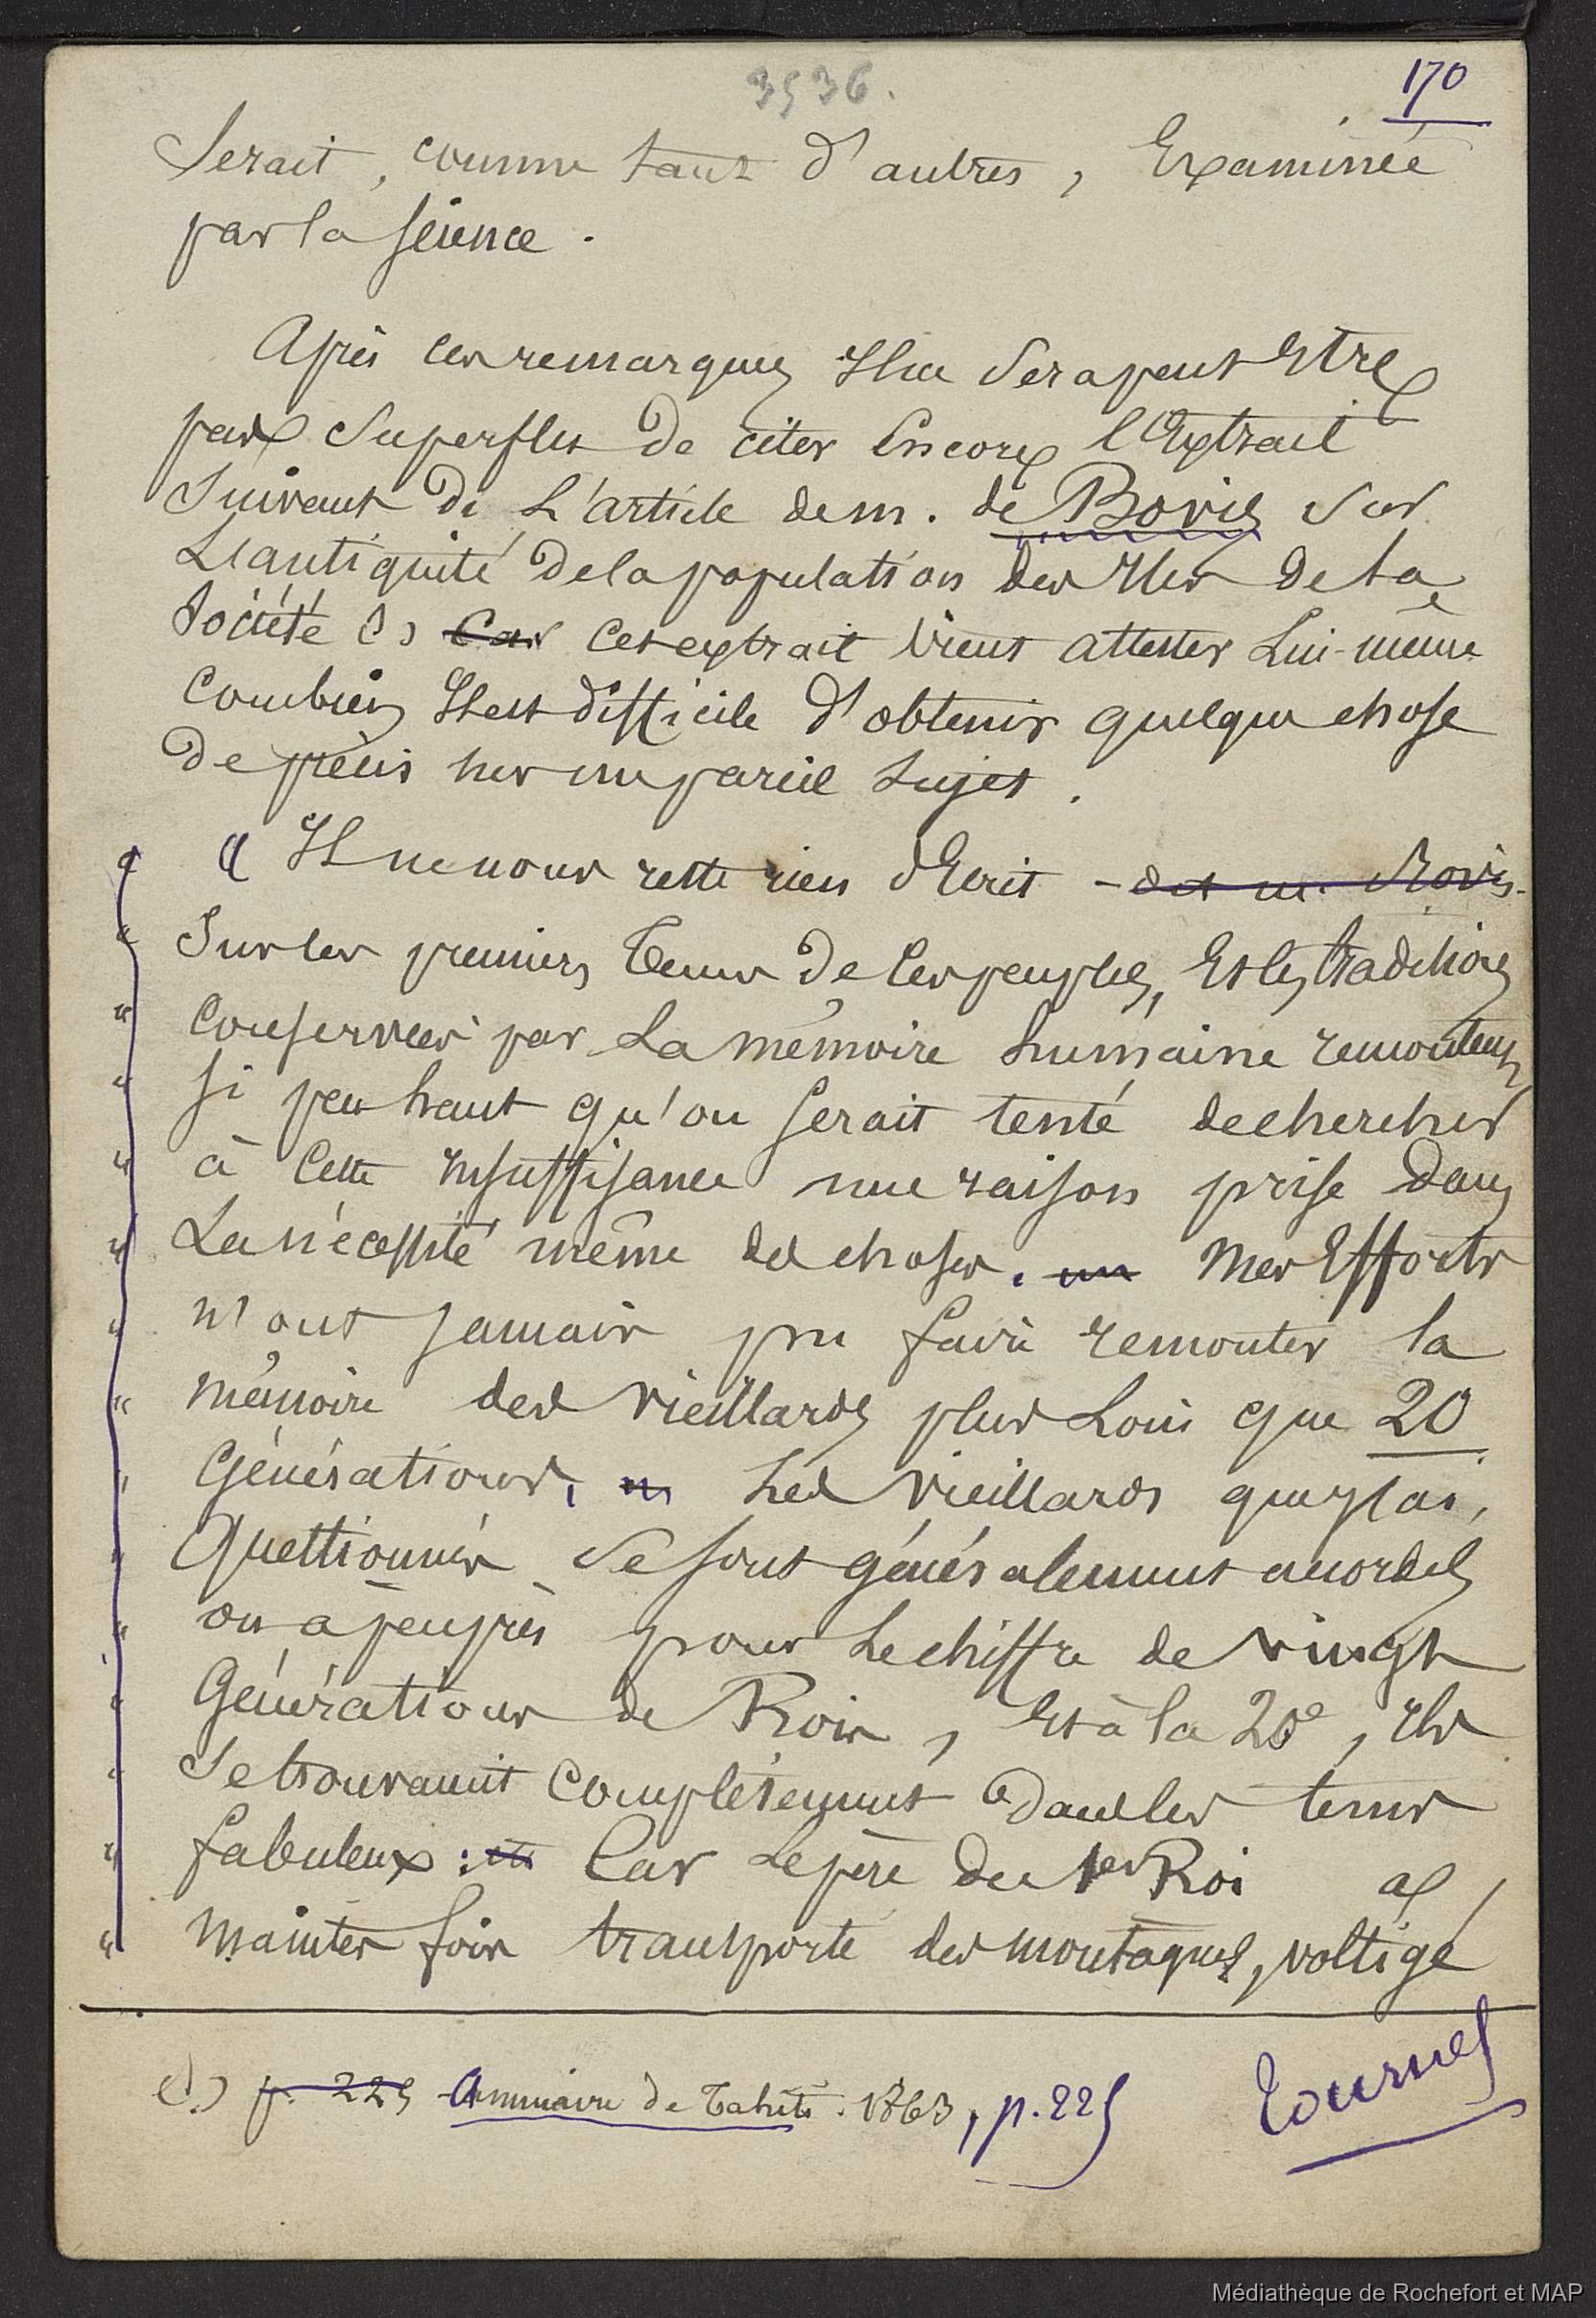 3536.
170
Serait, comme tant d'autres, Examinée
par la science.
Après ces remarques Il ne Sera peut Etre
pas Superflu de citer Encore l'Extrait
Suivant de L'article de m. de Bovis Sur
L'antiquité de la population des Iles de la
Société (1) Car Cet extrait vient attester Lui-même
Combien Il est difficile d'obtenir quelque chose
De précis sur un pareil Sujet.
" « Il ne nous reste rien d'Ecrit - dit m. Bovis -
" Sur les premiers Tems de Ces peuples, Et les traditions
" Conservées par La mémoire humaine remontent
" si peu haut qu'on serait tenté de chercher
" à Cette Insuffisance une raison prise dans
" La nécessité même des choses. Mes Efforts
" n'ont Jamais pu faire remonter la
" mémoire des vieillards plus Loin que 20
" Générations, Les vieillards que J'ai,
" Questionnés Se sont généralement accordés
" ou à peu près pour Le chiffre de vingt
" Générations de Rois, Et à la 20e, Ils
" Se trouvaient Complétement dans les tems
" fabuleux : Car Le père du 1er Roi a
" Maintes fois transporté des montagnes, voltigé
(1) p. 225 Annuaire de Tahiti. 1863, p. 225
Tournez
Médiathèque de Rochefort et MAP